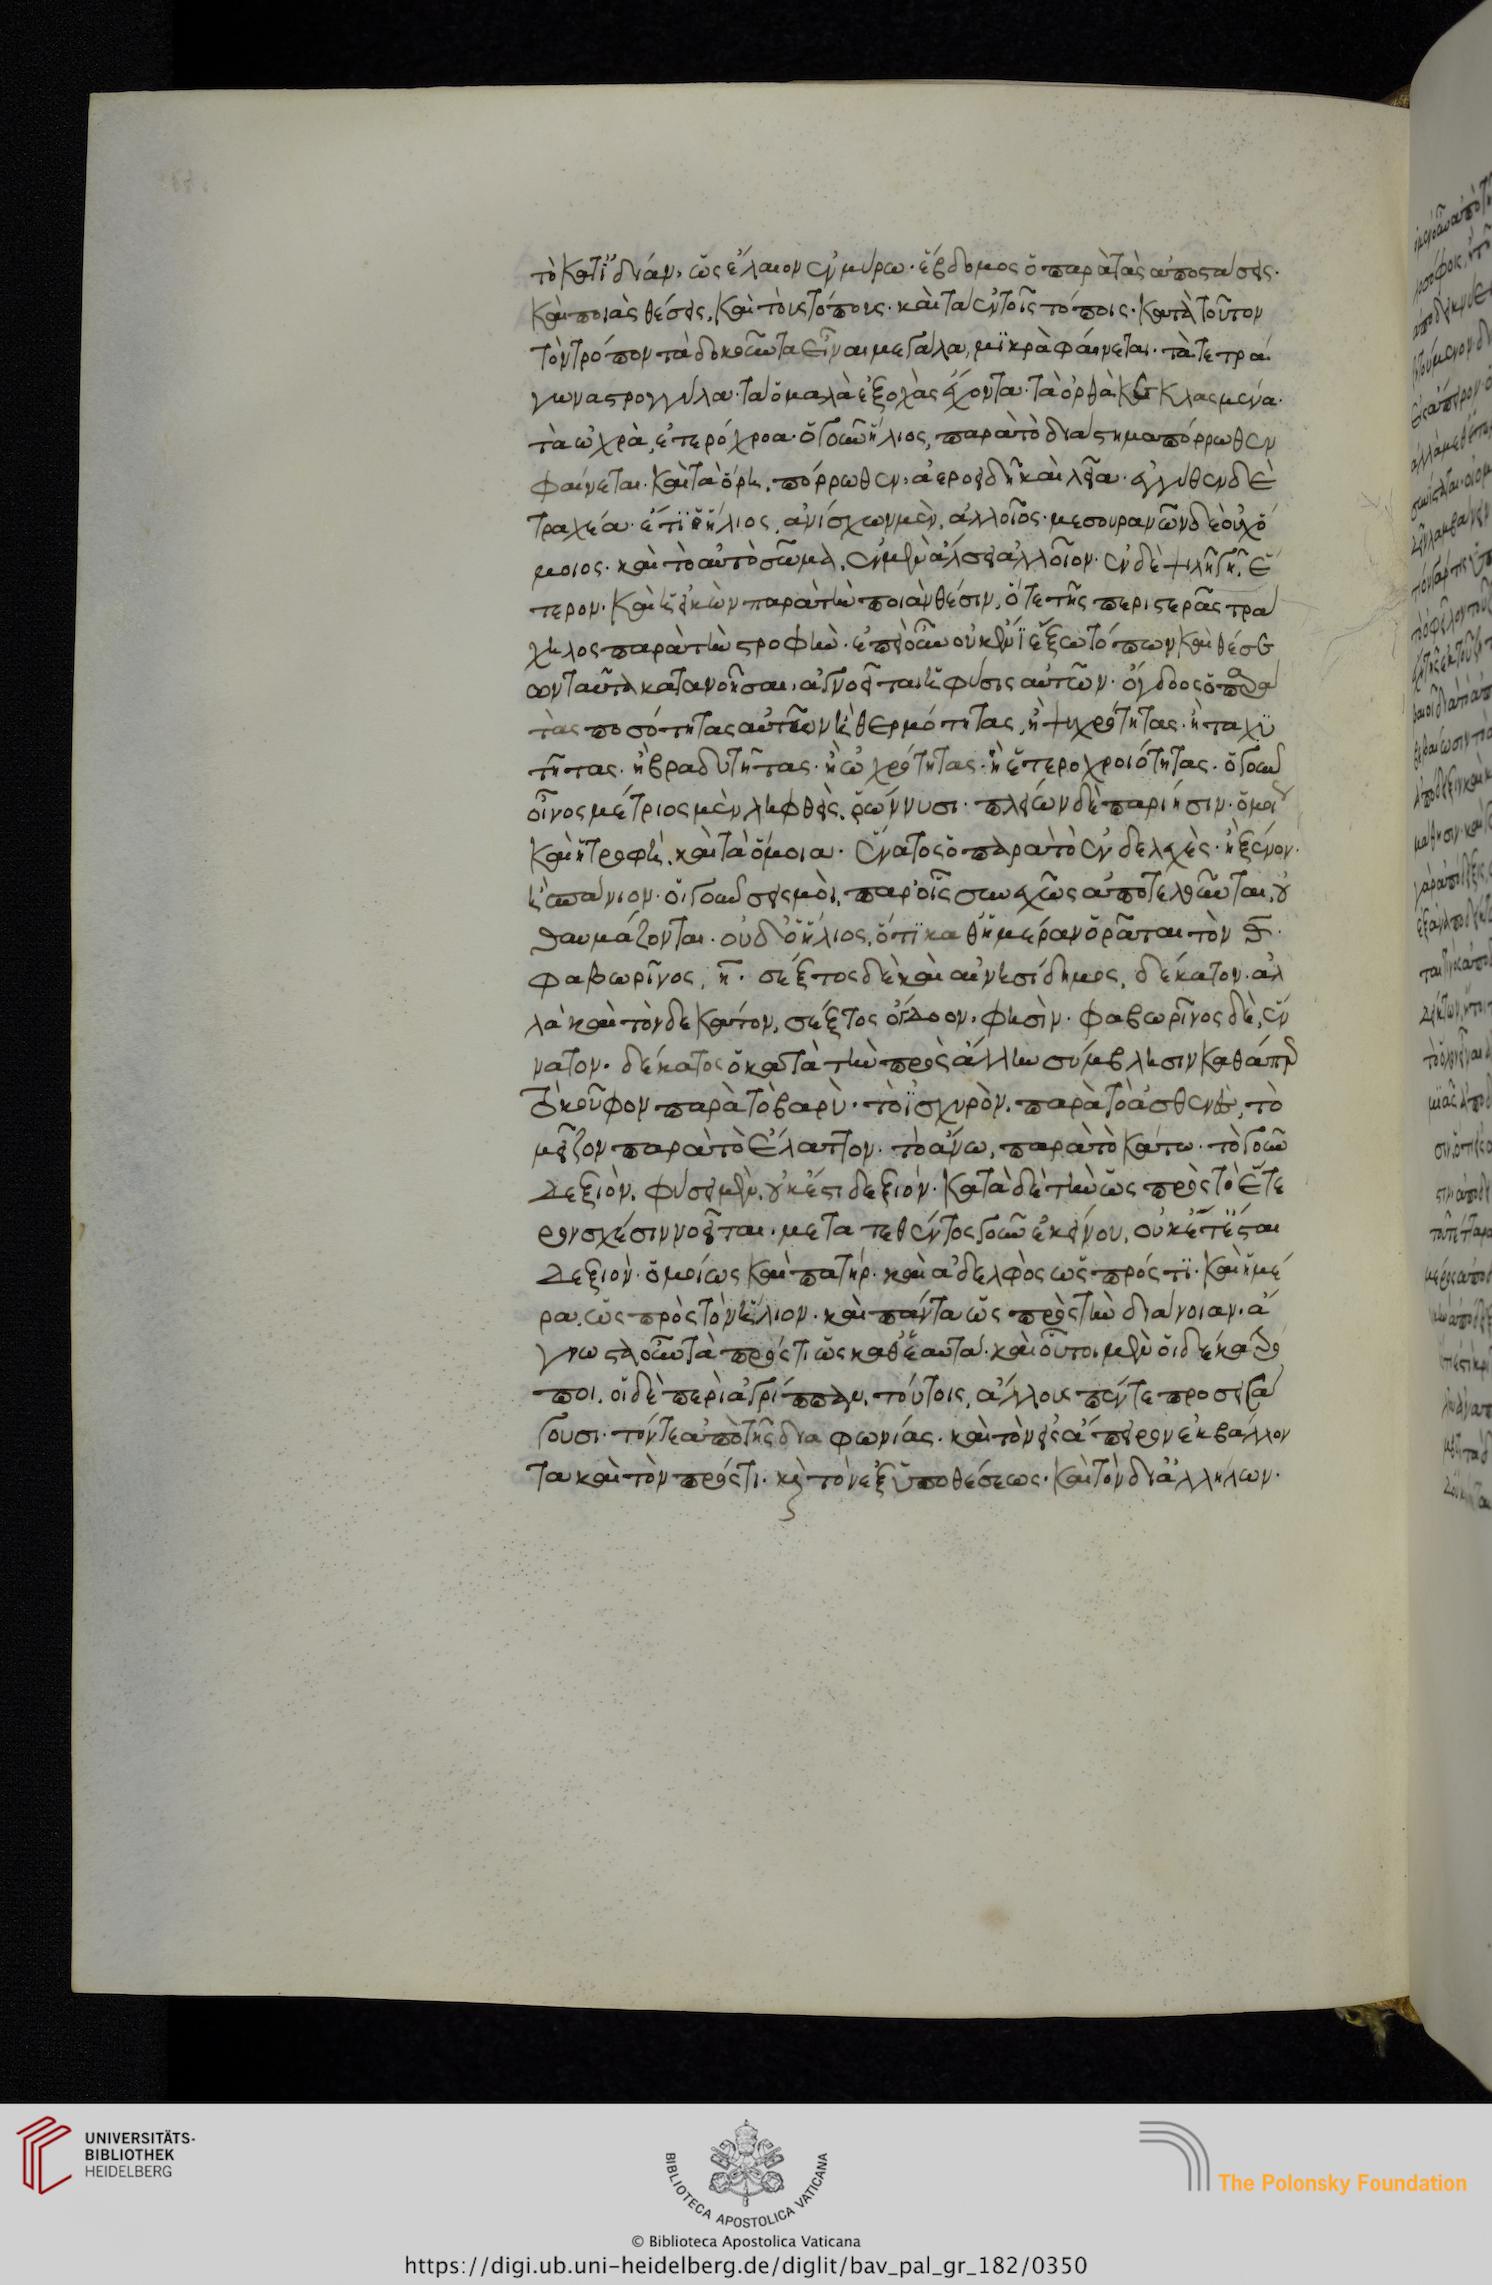 τὸ κατ ἰδίαν, ὡς ἔλαιον ἐν μύρω· ἕβδομος ὁ παρὰ τὰς ἀποστάσεις·
καὶ ποιὰς θέσεις, καὶ τοὺς τόπους· καὶ τὰ ἐν τοῖς τόποις· κατὰ τοῦτον
τὸν τρόπον τὰ δοκοῦντα εἶναι μεγάλα, μϊκρὰ φαίνεται· τὰ τετρά
γωνα στρογγύλα· τὰ ὁμαλὰ ἐξοχὰς ἔχοντα· τὰ ὀρθὰ κεκλασμένα·
τὰ ὠχρὰ, ἑτερόχροα· ὁ γοῦν ἥλιος, παρὰ τὸ διάστημα πόρρωθεν
φαίνεται· καὶ τὰ ὄρη, πόρρωθεν, ἀεροειδῆ καὶ λεῖα· ἐγγύθεν δὲ
τραχέα· ἔτϊ ὁ ἥλιος, ἀνίσχων μὲν, ἀλλοῖος· μεσουρανῶν δὲ οὐχ ὅ
μοιος· καὶ τὸ αὐτὸ σῶμα, ἐν μὲν ἄλσει ἀλλοῖον· ἐν δὲ ψιλῇ γῇ, ἕ
τερον· καὶ ἡ εἰκὼν παρὰ τὴν ποιὰν θέσιν, ὅ τε τῆς περιστερᾶς τρά
χηλος παρὰ τὴν στροφήν· ἐπεὶ οὖν οὐκ ἔνϊ ἔξω τόπων καὶ θέσε
ων ταῦτα κατανοῆσαι, ἀγνοεῖται ἡ φύσις αὐτῶν· ὄγδοος ὁ παρὰ
τὰς ποσότητας αὐτῶν ἢ θερμότητας, ἢ ψυχρότητας· ἢ ταχϋ
τῆτας· ἢ βραδυτῆτας· ἢ ὠχρότητας· ἢ ἑτεροχροιότητας· ὁ γοῦν
οἶνος μέτριος μὲν ληφθεὶς, ῥώννυσι· πλείων δὲ παρίησιν· ὁμοί
καὶ ἡ τροφὴ, καὶ τὰ ὅμοια· ἔνατος ὁ παρὰ τὸ ἐνδελεχὲς· ἢ ξένον·
ἢ σπάνιον· οἱ γοῦν σεισμοὶ, παρ' οἷς συνεχῶς ἀποτελοῦνται, οὐ
θαυμάζονται· οὐδ' ὁ ἥλιος, ὅτϊ καθ' ἡμέραν ὁρᾶται τὸν θ·
φαβωρῖνος, η· σέξτος δὲ καὶ αἰνεσίδημος, δέκατον· ἀλ
λὰ καὶ τὸν δέκατον, σέξτος ὄγδοον, φησὶν· φαβωρῖνος δὲ, ἔν
νατον· δέκατος ὁ κατὰ τὴν πρὸς ἄλλην σύμβλησιν καθάπερ
τὸ κοῦφον παρὰ τὸ βαρὺ· τὸ ἰσχυρὸν, παρὰ τὸ ἀσθενὲς, τὸ
μεῖζον παρὰ τὸ ἔλαττον· τὸ ἄνω, παρὰ τὸ κάτω· τὸ γοῦν
δεξιὸν, φύσει μὲν, οὐκ ἔστι δεξιόν· κατὰ δὲ τὴν ὡς πρὸς τὸ ἕτε
ρον σχέσιν νοεῖται· μετατεθέντος γοῦν ἐκείνου, οὐκ ἔτϊ ἔσται
δεξιόν· ὁμοίως καὶ πατήρ· καὶ ἀδελφὸς ὡς πρός τϊ· καὶ ἡμέ
ρα, ὡς πρὸς τὸν ἥλιον· καὶ πάντα ὡς πρὸς τὴν διάνοιαν· ἄ
γνωστα οὖν τὰ πρός τι ὡς καθ' ἑαυτά· καὶ οὗτοι μὲν οἱ δέκα τρό
ποι· οἱ δὲ περὶ ἀγρίππαν, τούτοις, ἄλλους πέντε προσεισά
γουσι· τόν τε ἀπὸ τῆς διαφωνίας· καὶ τὸν εἰς ἄπειρον ἐκβάλλον
τα καὶ τὸν πρός τι· καὶ τὸν ἐξ ὑποθέσεως· καὶ τὸν δι' ἀλλήλων·
UNIVERSITÄTS-
BIBLIOTHEK
HEIDELBERG
BIBLIOTECA APOSTOLICA VATICANA
The Polonsky Foundation
© Biblioteca Apostolica Vaticana
https://digi.ub.uni-heidelberg.de/diglit/bav_pal_gr_182/0350